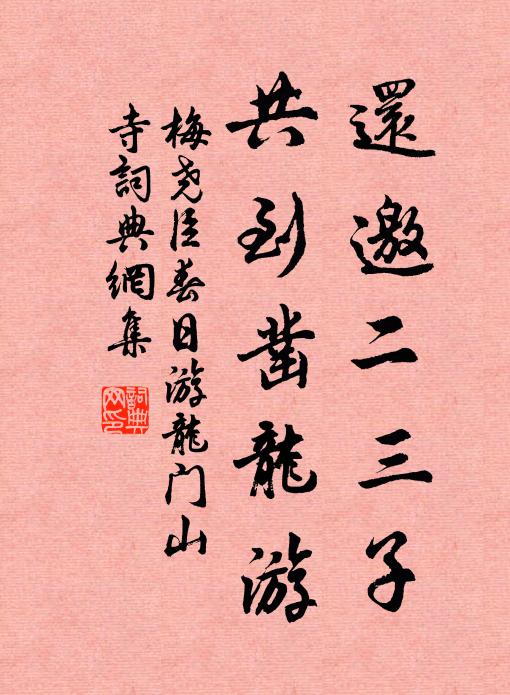 還邀二三子
共到凿龍游
梅尧臣春日游龍门山
寺詞典網集
詞典網印